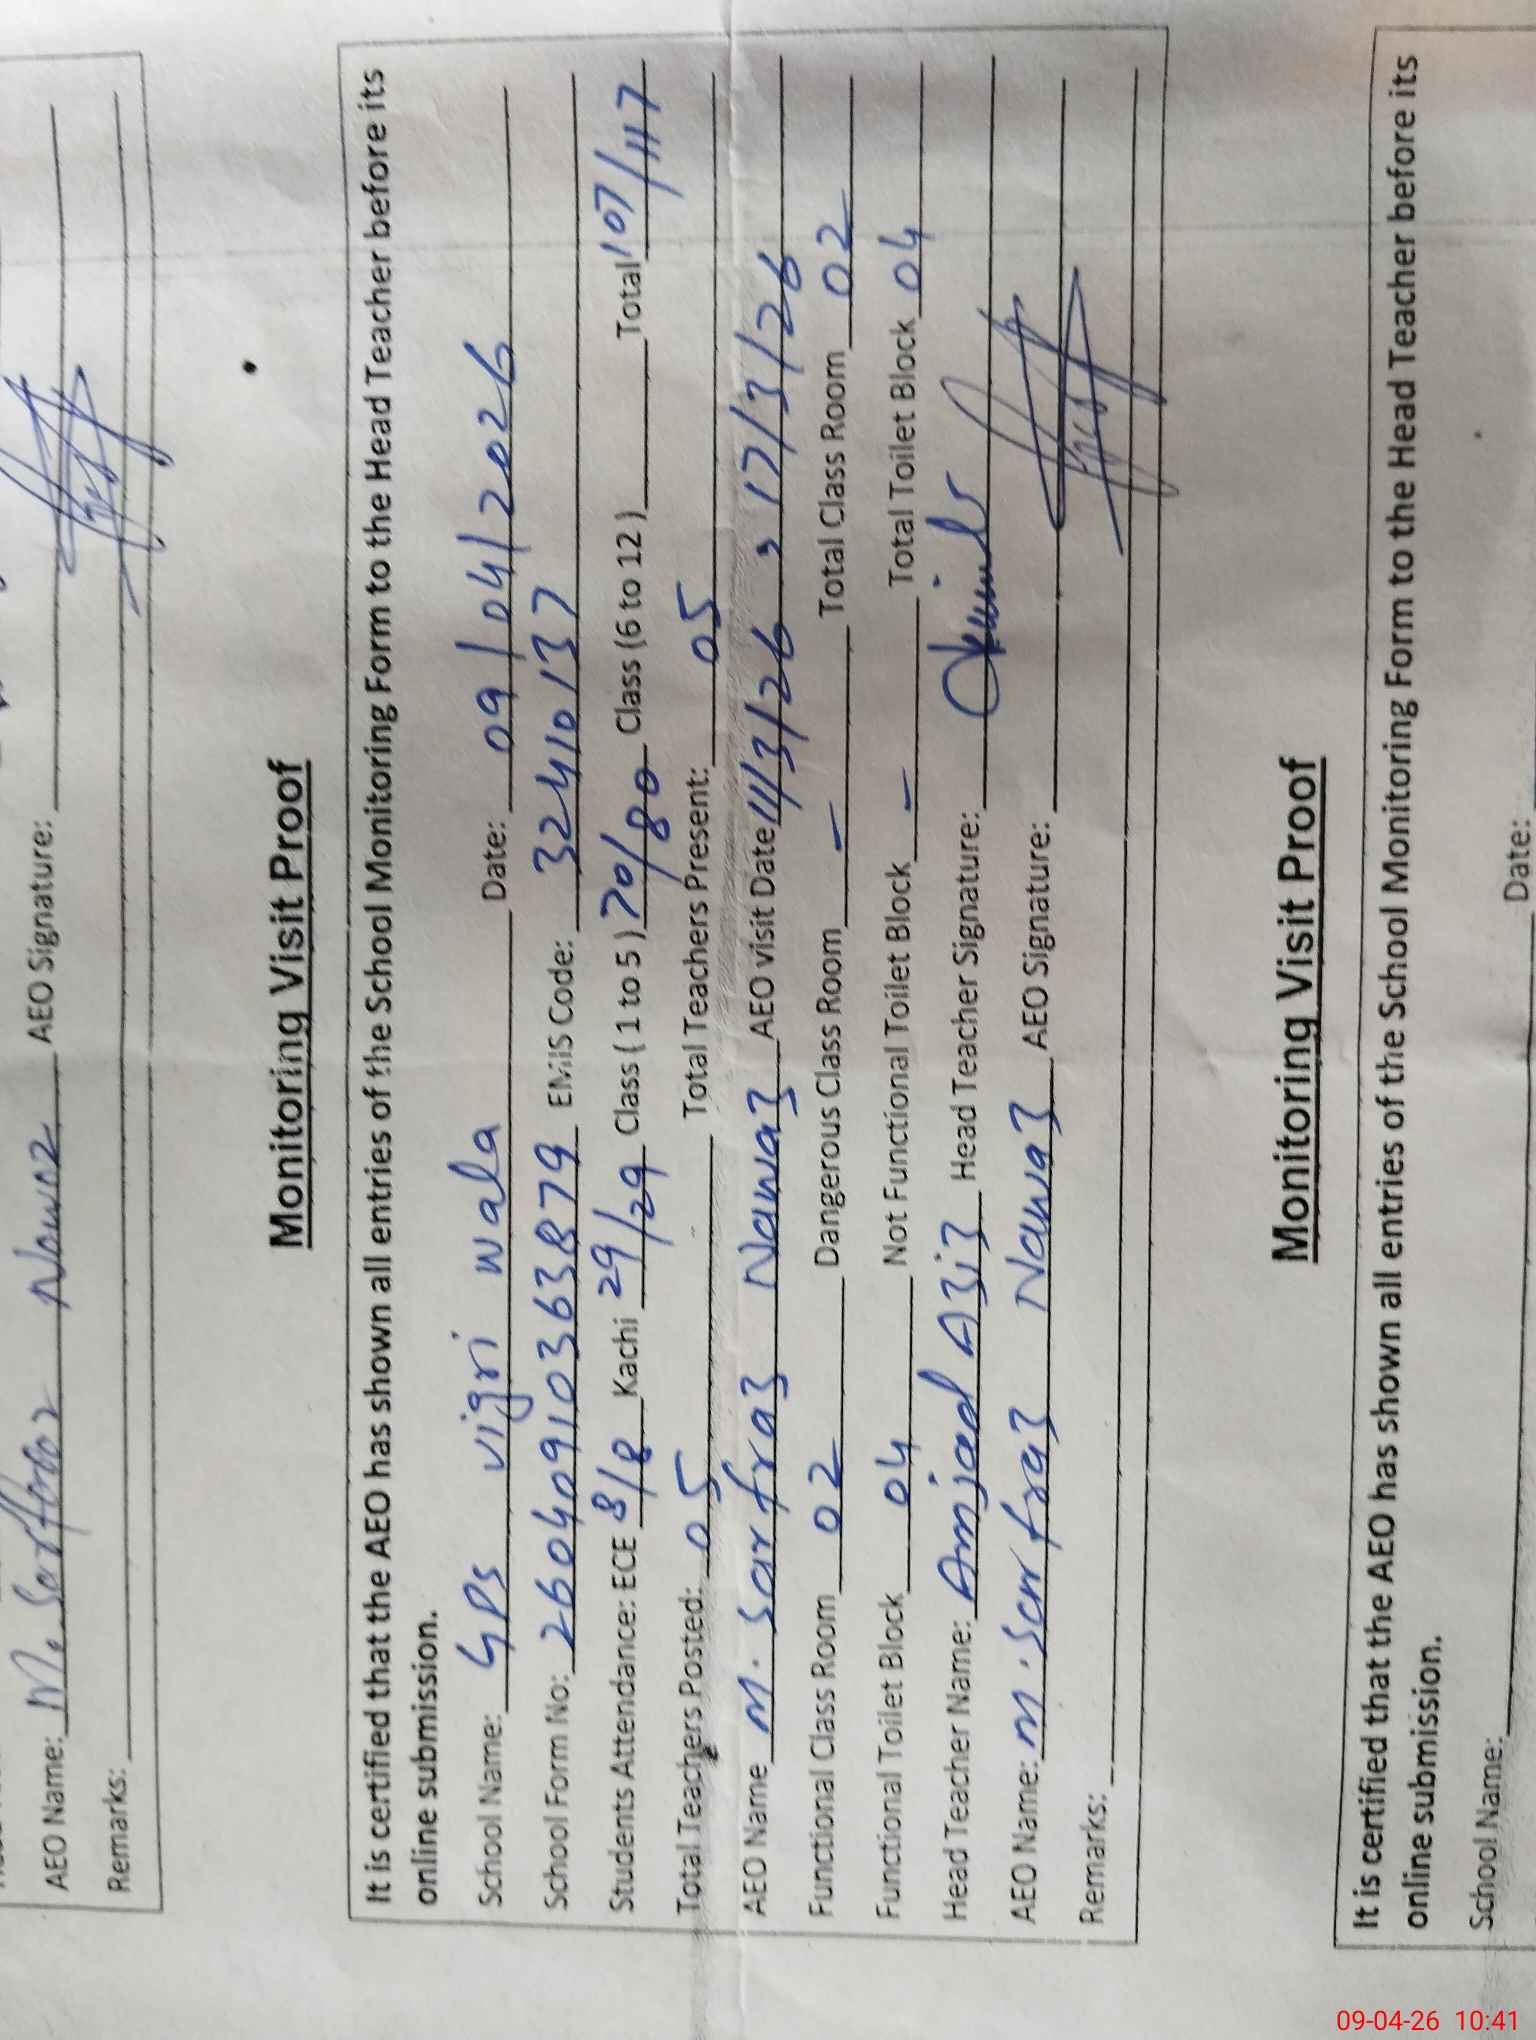 AEO Name: M. Sarfraz Nawaz AEO Signature:
Remarks:
Monitoring Visit Proof
It is certified that the AEO has shown all entries of the School Monitoring Form to the Head Teacher before its
online submission.
School Name: GPS vigri wala Date: 09/04/2026
School Form No: 26040910363879 EMIS Code: 32410137
Students Attendance: ECE 8/8 Kachi 29/29 Class ( 1 to 5 ) 70/80 Class (6 to 12 ) Total 107/117
Total Teachers Posted: 05 Total Teachers Present: 05
AEO Name M. Sarfraz Nawaz AEO visit Date 11/3/26 , 17/3/26
Functional Class Room 02 Dangerous Class Room – Total Class Room 02
Functional Toilet Block 04 Not Functional Toilet Block – Total Toilet Block 04
Head Teacher Name: Amjad Aziz Head Teacher Signature:
AEO Name: M. Sarfraz Nawaz AEO Signature:
Remarks:
Monitoring Visit Proof
It is certified that the AEO has shown all entries of the School Monitoring Form to the Head Teacher before its
online submission.
School Name: Date:
09-04-26 10:41